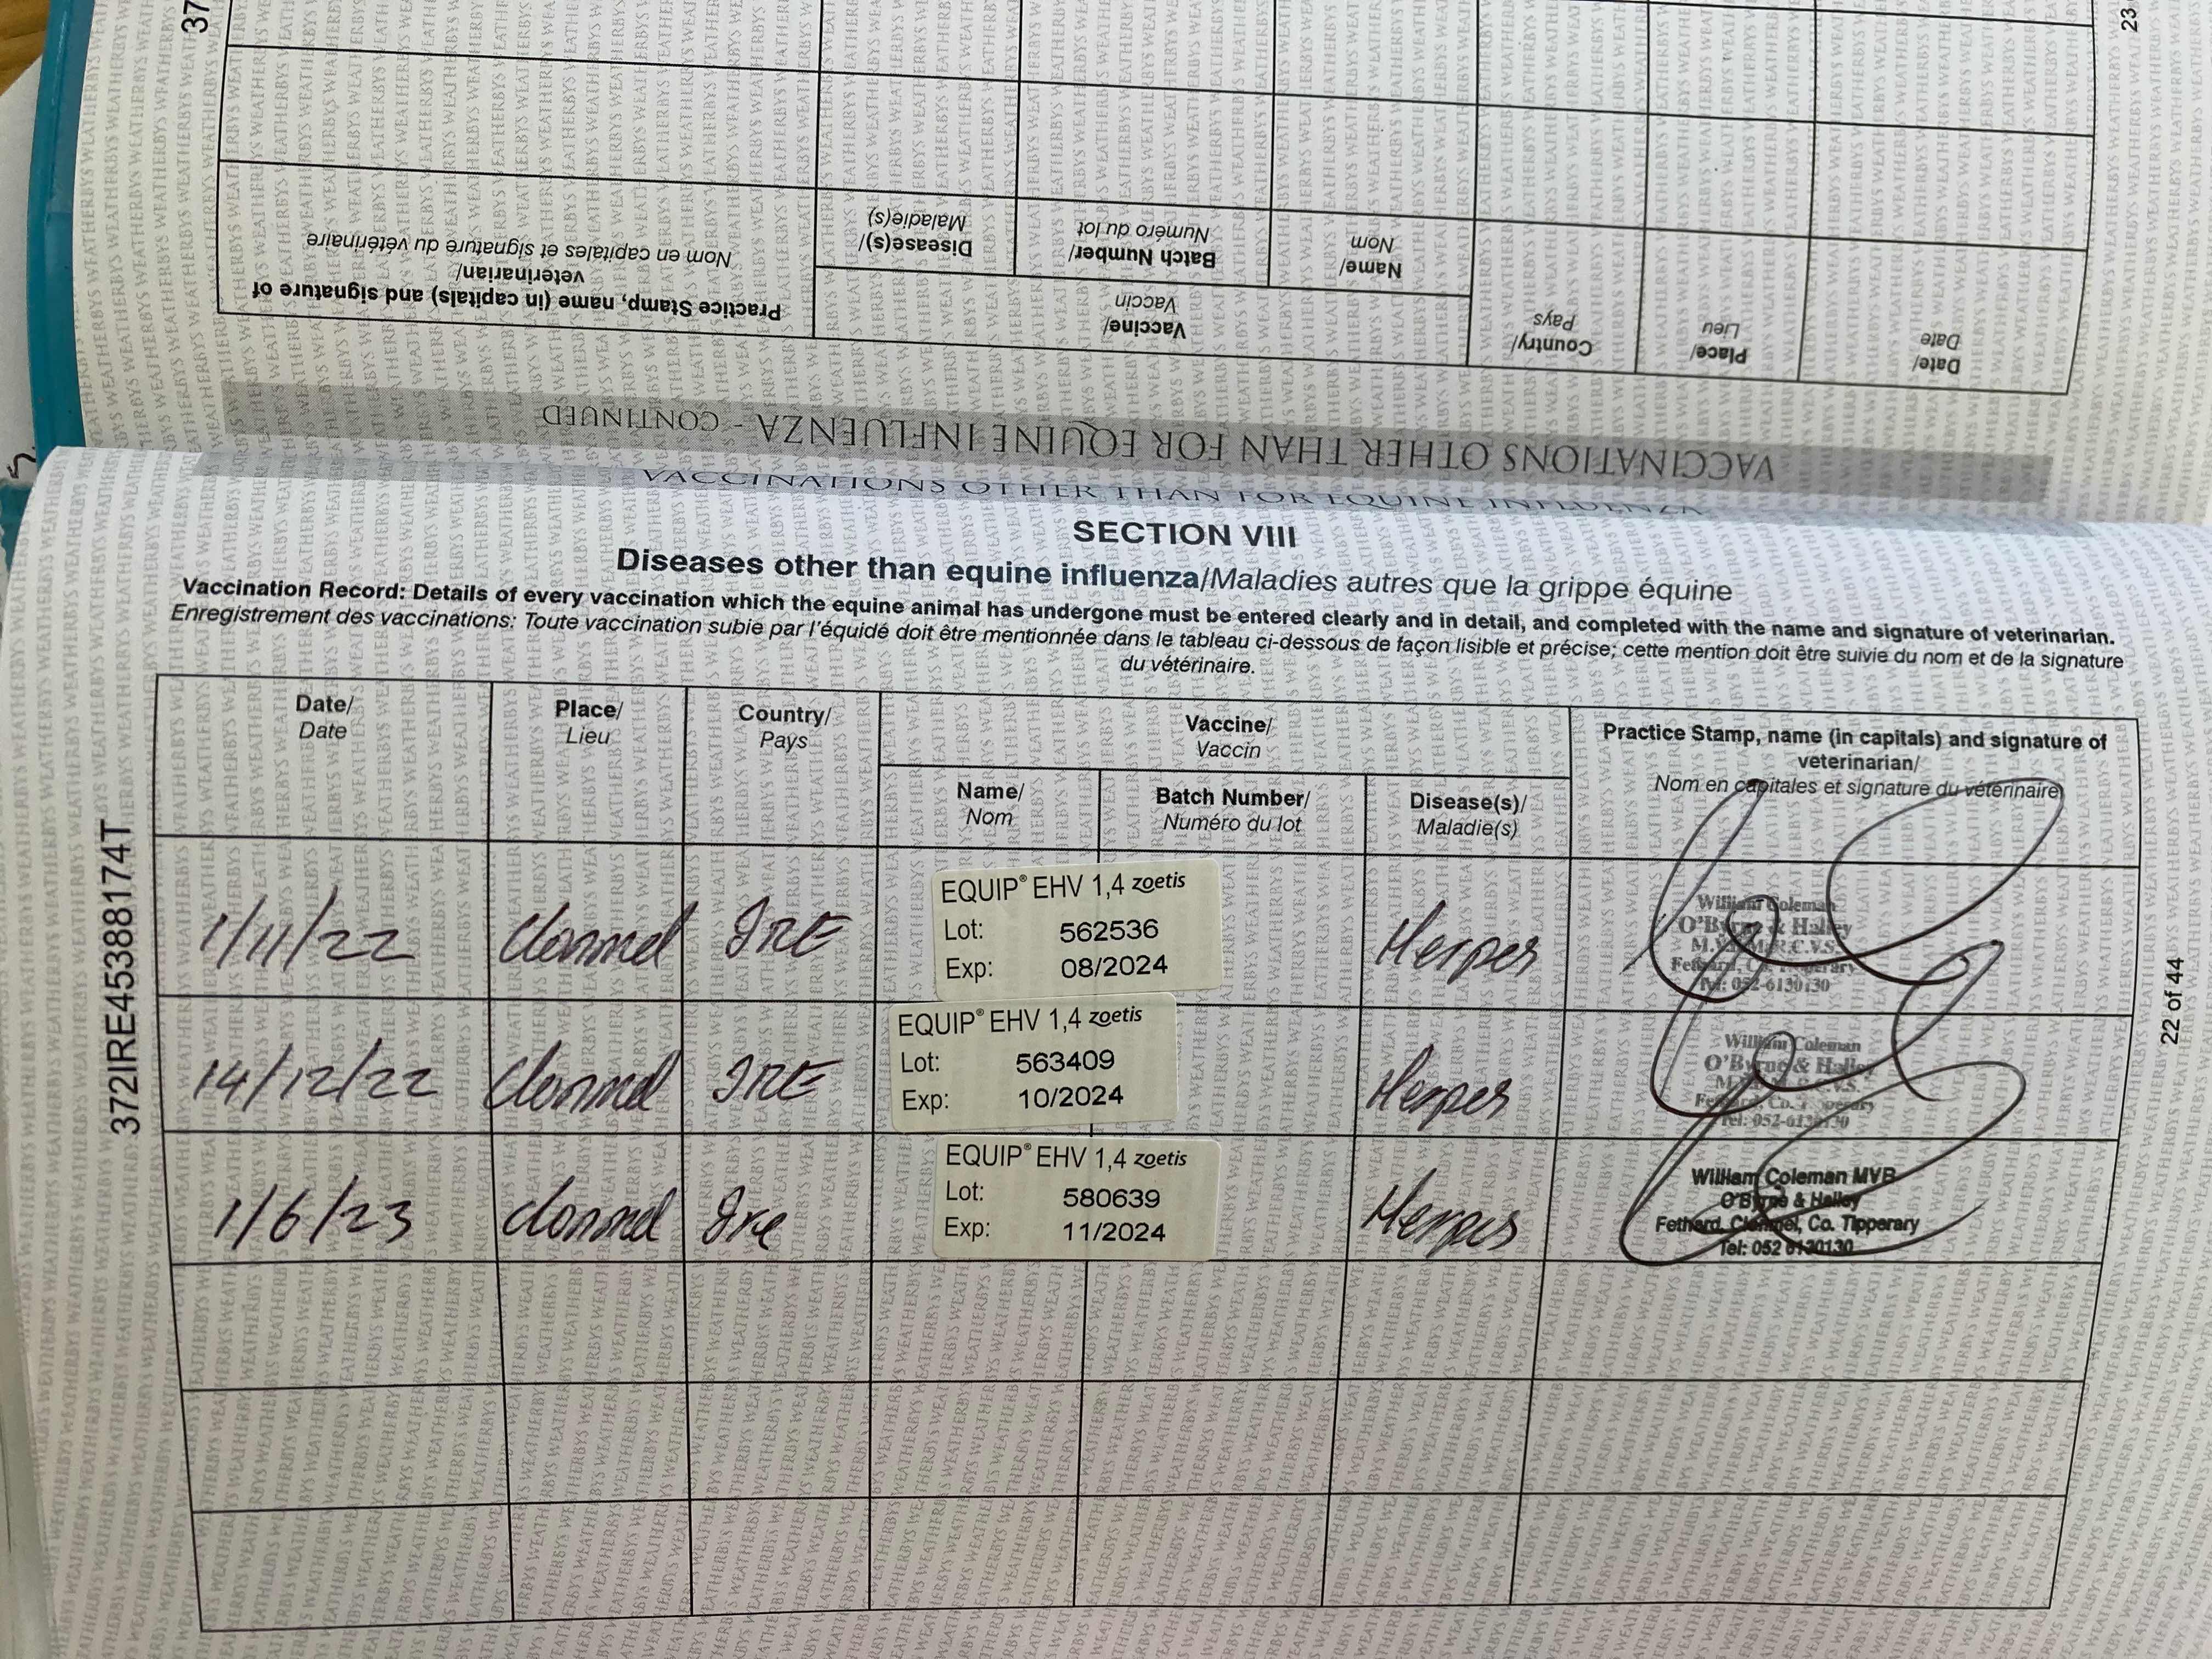 37
23
Practice Stamp, name (in capitals) and signature of
veterinarian/
Nom en capitales et signature du vétérinaire
Vaccine/
Vaccin
Disease(s)/
Maladie(s)
Batch Number/
Numéro du lot
Name/
Nom
Country/
Pays
Place/
Lieu
Date/
Date
VACCINATIONS OTHER THAN FOR EQUINE INFLUENZA - CONTINUED
VACCINATIONS OTHER THAN FOR EQUINE INFLUENZA
SECTION VIII
Diseases other than equine influenza/Maladies autres que la grippe équine
Vaccination Record: Details of every vaccination which the equine animal has undergone must be entered clearly and in detail, and completed with the name and signature of veterinarian.
Enregistrement des vaccinations: Toute vaccination subie par l'équidé doit être mentionnée dans le tableau ci-dessous de façon lisible et précise; cette mention doit être suivie du nom et de la signature
du vétérinaire.
Date/
Date
Place/
Lieu
Country/
Pays
Vaccine/
Vaccin
Practice Stamp, name (in capitals) and signature of
veterinarian/
Nom en capitales et signature du vétérinaire
Name/
Nom
Batch Number/
Numéro du lot
Disease(s)/
Maladie(s)
1/11/22 Clonmel IRE
EQUIP® EHV 1,4 zoetis
Lot: 562536
Exp: 08/2024
Herpes
William Coleman
O'Byrne & Halley
M.V.B. M.R.C.V.S.
Fethard, Co. Tipperary
Tel: 052-6130130
14/12/22 Clonmel IRE
EQUIP® EHV 1,4 zoetis
Lot: 563409
Exp: 10/2024
Herpes
William Coleman
O'Byrne & Halley
Fethard, Co. Tipperary
Tel: 052-6130130
1/6/23 Clonmel Ire
EQUIP® EHV 1,4 zoetis
Lot: 580639
Exp: 11/2024
Herpes
William Coleman MVB
O'Byrne & Halley
Fethard, Clonmel, Co. Tipperary
Tel: 052 6130130
372IRE45388174T
22 of 44